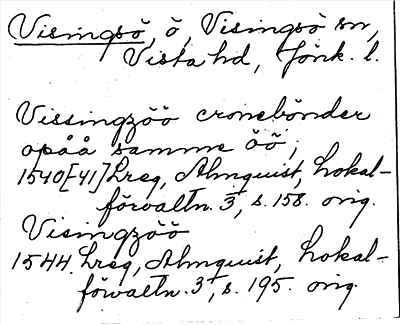 Visingsö, ö, Visingsö sn,
Vista hd, Jönk. l.
Vissingzöö cronebönder
opåå samme öö;
1540[-41] Lreg, Almquist, Lokal-
förvaltn. 3, s. 158. orig.
Visingzöö
1544. Lreg, Almquist, Lokal-
förvaltn. 3, s. 195. orig.